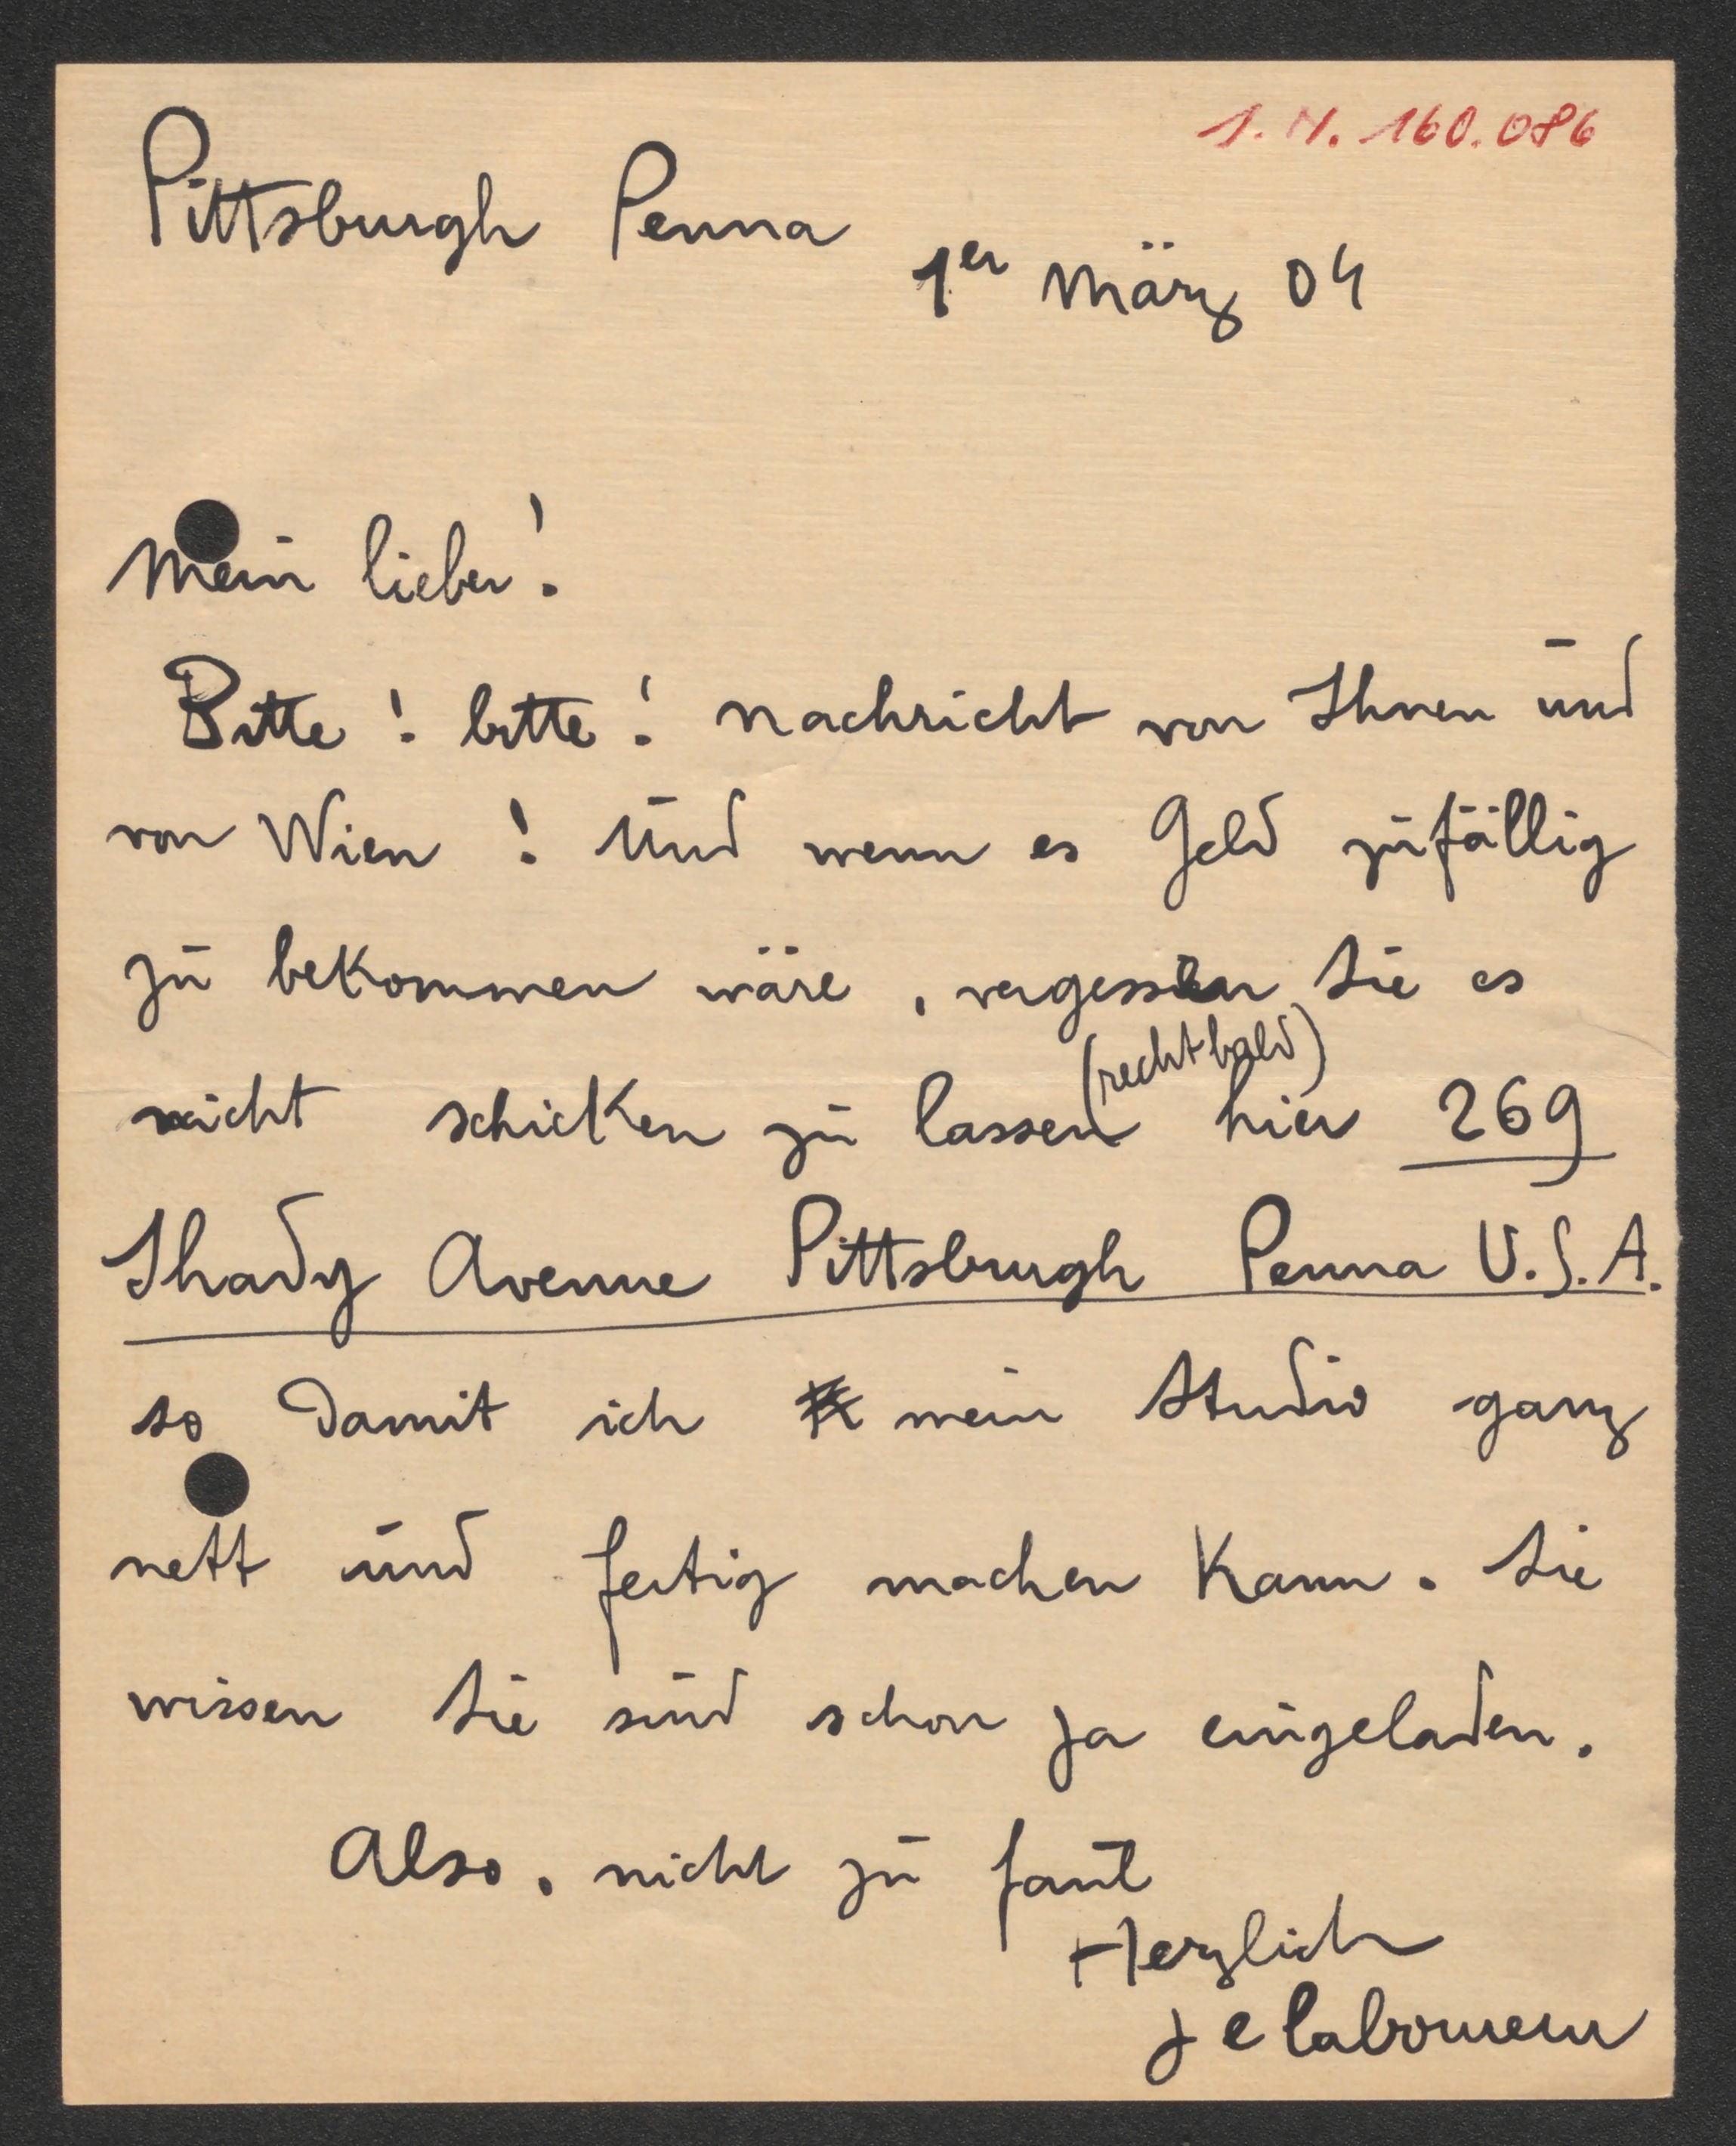 I. N. 160.086
Pittsburgh Penna
1er März 04
Mein lieber!
Bitte! bitte! nachricht von Ihnen und
von Wien! Und wenn es Geld zufällig
zu bekommen wäre, vergessen Sie es
(recht bald)
nicht schicken zu lassen hier 269
Shady Avenue Pittsburgh Penna U.S.A.
so damit ich mein Studio ganz
nett und fertig machen kann. Sie
wissen Sie sind schon ja eingeladen.
Also, nicht zu faul
Herzlich